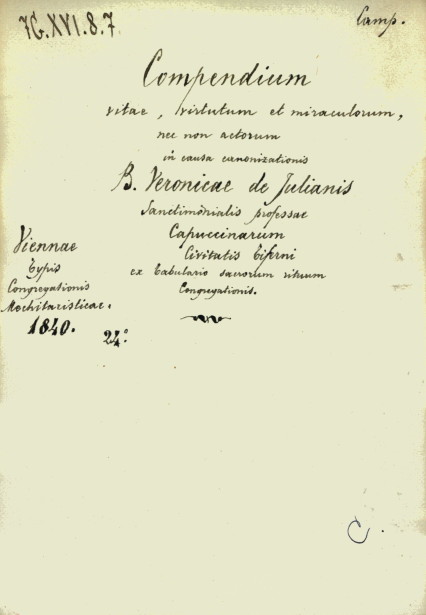 7G.XVI.8.7
Camp.
Compendium
vitae, virtutum et miraculorum,
nec non actorum
in causa canonizationis
B. Veronicae de Julianis
Sanctimonialis professae
Capuccinarum
Civitatis Tiferni
ex Tabulario sacrorum rituum
Congregationis.
Viennae
Typis
Congregationis
Mechitaristicae.
1840.
24.°
C.